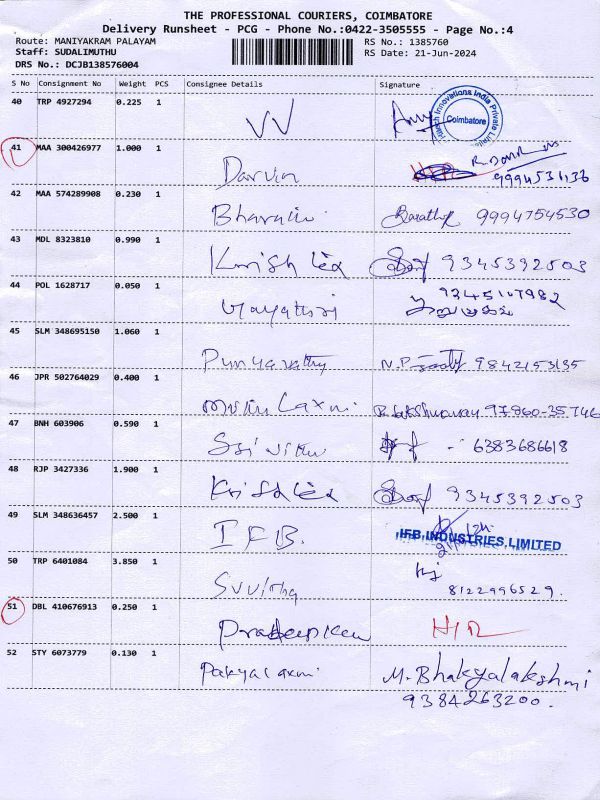 THE PROFESSIONAL COURIERS, COIMBATORE
Delivery Runsheet - PCG - Phone No.:0422-3505555 - Page No.:4
Route: MANIYAKRAM PALAYAM RS No.: 1385760
Staff: SUDALIMUTHU RS Date: 21-Jun-2024
DRS No.: DCJB138576004
S No Consignment No Weight PCS Consignee Details Signature
40 TRP 4927294 0.225 1
VV
Hitech Innovations India Private Limited Coimbatore
41 MAA 300426977 1.000 1
Darvin 9994531136
42 MAA 574289908 0.230 1
9994754530
43 MDL 8323810 0.990 1
9345392503
44 POL 1628717 0.050 1
Gayathri
45 SLM 348695150 1.060 1
9842153135
46 JPR 502764029 0.400 1
Laxmi 97860-35746
47 BNH 603906 0.590 1
Sri 6383686618
48 RJP 3427336 1.900 1
9345392503
49 SLM 348636457 2.500 1
IFB. IFB INDUSTRIES LIMITED
50 TRP 6401084 3.850 1
8122996529.
51 DBL 410676913 0.250 1
52 STY 6073779 0.130 1
Pakyalaxmi M. Bhakyalakshmi
9384263200.